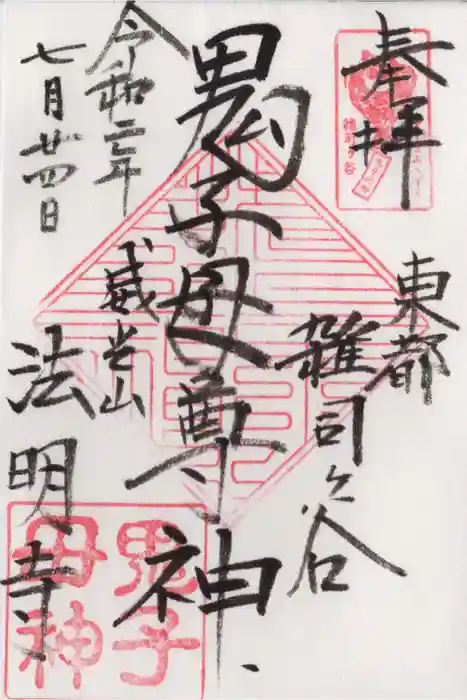 奉拝
東都
雑司ヶ谷
鬼子母尊神
威光山
法明寺
令和二年
七月廿四日
鬼子
母神
雑司ヶ谷